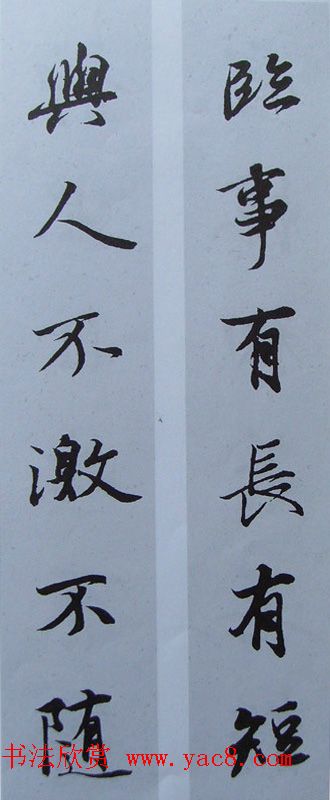 臨事有長有短
與人不激不随
书法欣赏 www.yac8.com